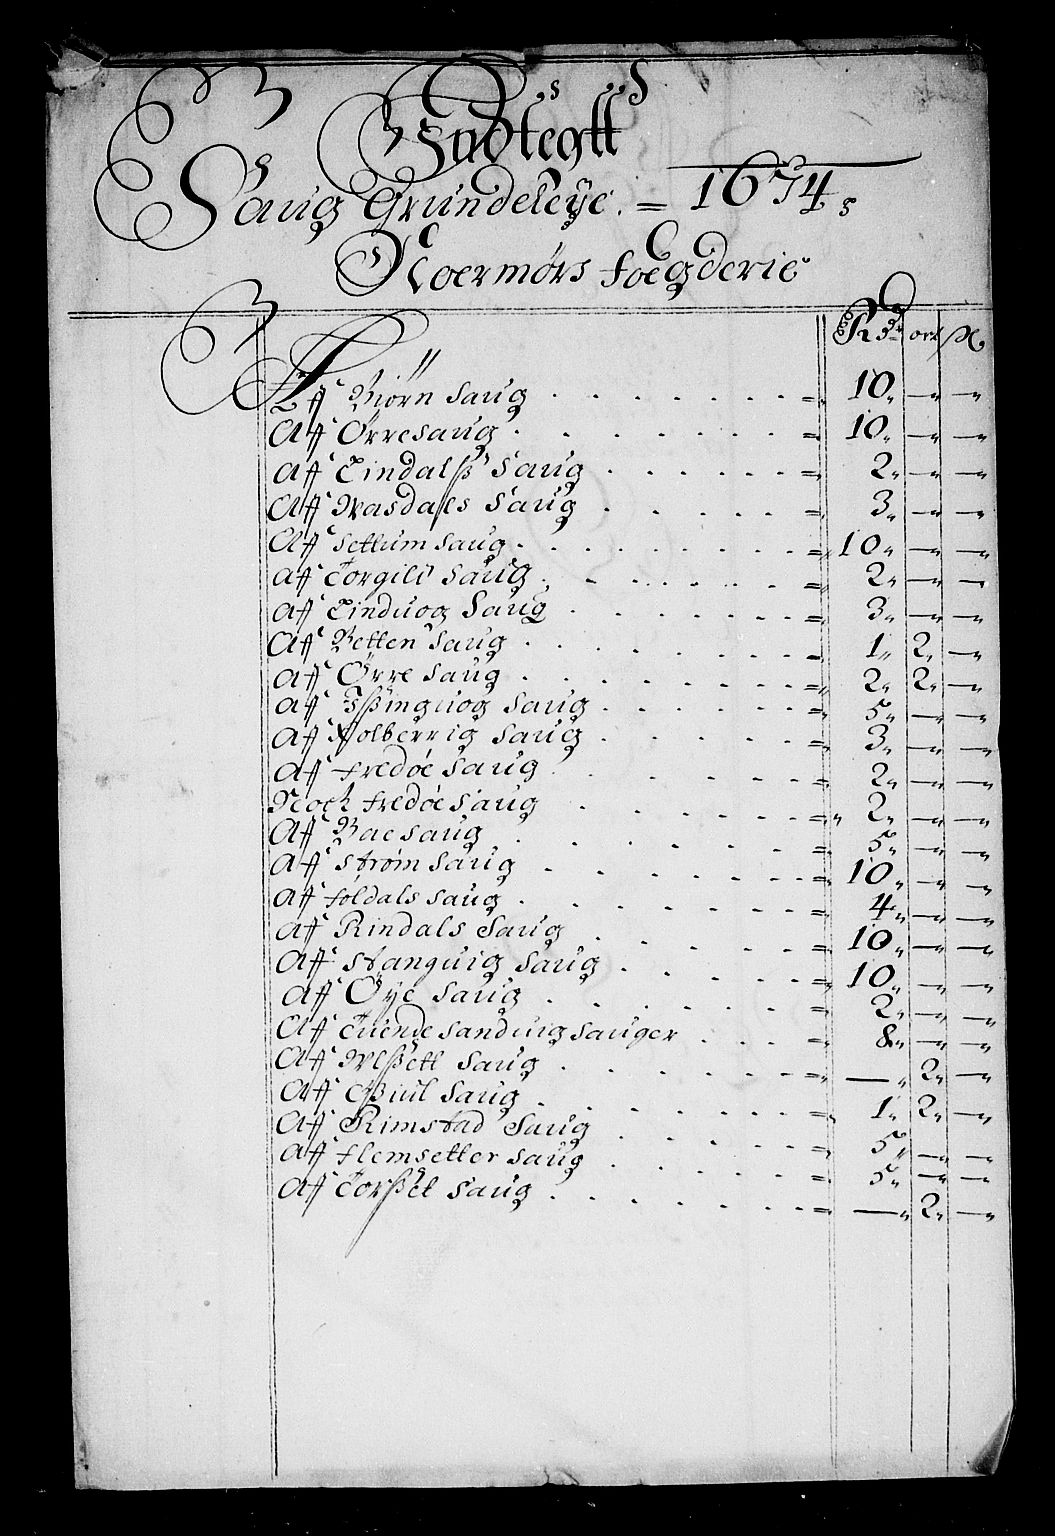 Indtegtt
Saug Grundeleÿe. = 1674,
Noermørs foegderie
Rd: ort ß
Aff Biørn saug = 10„ —„ —„
Aff Ørresaug = 10„ —„ —„
aff Tindalß saug = 2„ —„ —„
Aff Wasdals saug = 3„ —„ —„
Aff settum saug = 10„ —„ —„
aff Torgils saug = 2„ —„ —„
aff Tinduog Saug = 3„ —„ —„
Aff Betten saug = 1„ 2„ —„
aff Ørre saug = 2„ 2„ —„
aff saug = 5„ —„ —„
aff Holberrig saug = 3„ —„ —„
aff fredøe saug = 2„ —„ —„
Noch fredøe saug = 2„ —„ —„
Aff Bae saug = 5„ —„ —„
aff strøm saug = 10„ —„ —„
aff foldals saug = 4„ —„ —„
aff Rindals saug = 10„ —„ —„
aff stanguig saug = 10„ —„ —„
aff Øye saug = 2„ —„ —„
Aff Tuende sanduig sauger = 8„ —„ —„
aff saug = —„ 2„ —„
Aff saug = 1„ 2„ —„
aff Rimstad saug = 5„ —„ —„
aff flemsetter saug = 5„ —„ —„
aff Torßet saug = —„ 2„ —„